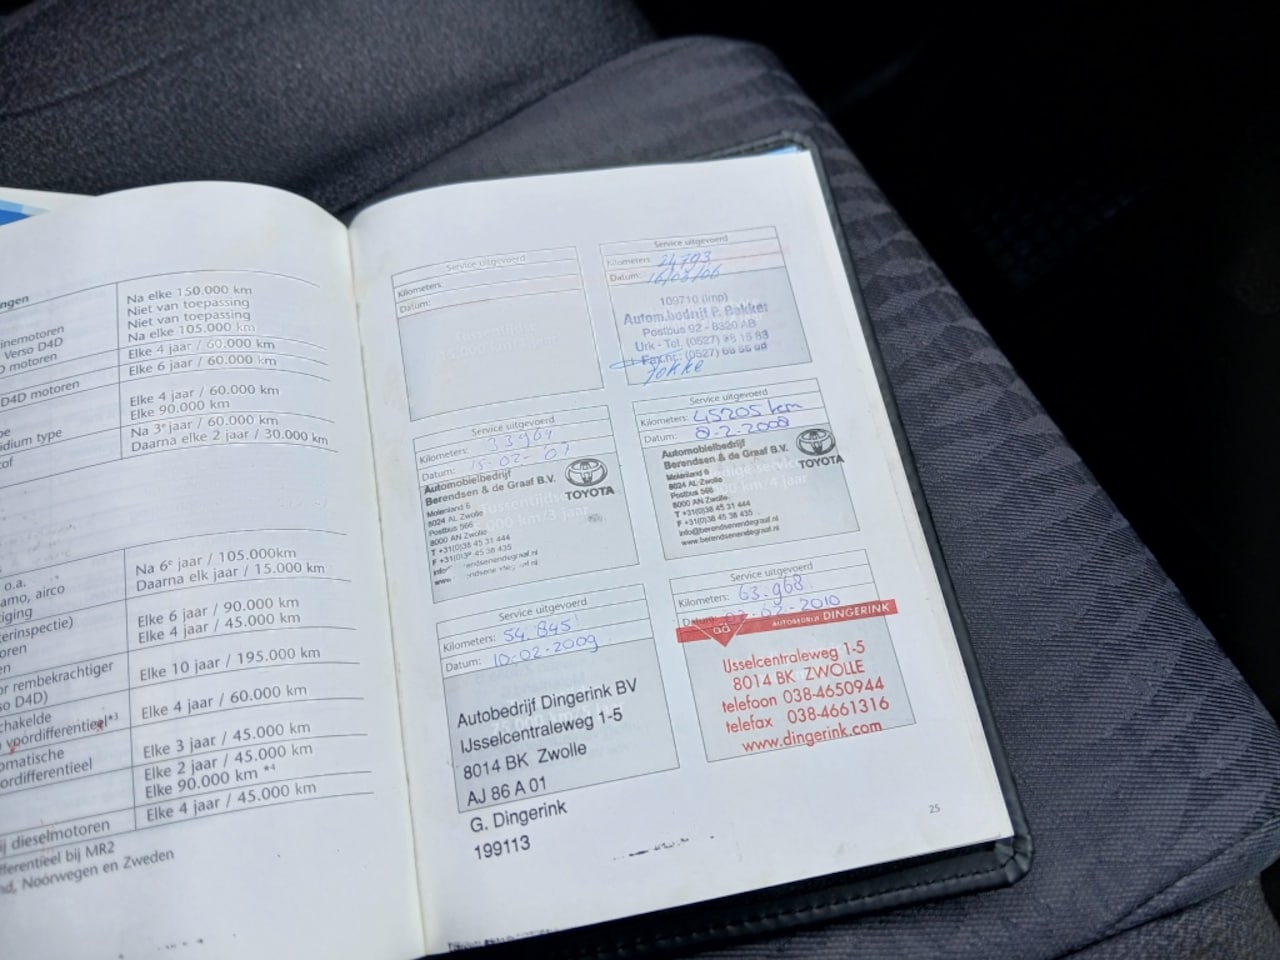 ngen
Na elke 150.000 km
Niet van toepassing
inemotoren
Niet van toepassing
Verso D4D
Na elke 105.000 km
motoren
Elke 4 jaar / 60.000 km
Elke 6 jaar / 60.000 km
D4D motoren
Elke 4 jaar / 60.000 km
pe
Elke 90.000 km
idium type
Na 3e jaar / 60.000 km
tof
Daarna elke 2 jaar / 30.000 km
o.a.
Na 6e jaar / 105.000km
amo, airco
Daarna elk jaar / 15.000 km
iging
erinspectie)
Elke 6 jaar / 90.000 km
oren
Elke 4 jaar / 45.000 km
en
or rembekrachtiger
Elke 10 jaar / 195.000 km
so D4D)
chakelde
Elke 4 jaar / 60.000 km
voordifferentieel*3
omatische
Elke 3 jaar / 45.000 km
ordifferentieel
Elke 2 jaar / 45.000 km
Elke 90.000 km *4
ij dieselmotoren
Elke 4 jaar / 45.000 km
fferentieel bij MR2
nd, Noorwegen en Zweden
Service uitgevoerd
Kilometers:
Datum:
Service uitgevoerd
Kilometers: 24793
Datum: 16/03/06
109710 (imp)
Autom.bedrijf P. Bakker
Postbus 92 - 8320 AB
Urk - Tel. (0527) 68 15 83
Fax nr.: (0527)
Service uitgevoerd
Kilometers: 33964
Datum: 15-02-07
Automobielbedrijf
Berendsen & de Graaf B.V.
Molenland 6
8024 AL Zwolle
Postbus 566
8000 AN Zwolle
T +31(0)38 45 31 444
F +31(0)38 45 38 435
TOYOTA
Service uitgevoerd
Kilometers: 45205 km
Datum: 8-2-2008
Automobielbedrijf
Berendsen & de Graaf B.V.
Molenland 6
8024 AL Zwolle
Postbus 566
8000 AN Zwolle
T +31(0)38 45 31 444
F +31(0)38 45 38 435
info@berendsenendegraaf.nl
www.berendsenendegraaf.nl
TOYOTA
Service uitgevoerd
Kilometers: 54.845
Datum: 10-02-2009
Autobedrijf Dingerink BV
IJsselcentraleweg 1-5
8014 BK Zwolle
AJ 86 A 01
G. Dingerink
199113
Service uitgevoerd
Kilometers: 63.968
02-2010
ad AUTOBEDRIJF DINGERINK
IJsselcentraleweg 1-5
8014 BK ZWOLLE
telefoon 038-4650944
telefax 038-4661316
www.dingerink.com
25